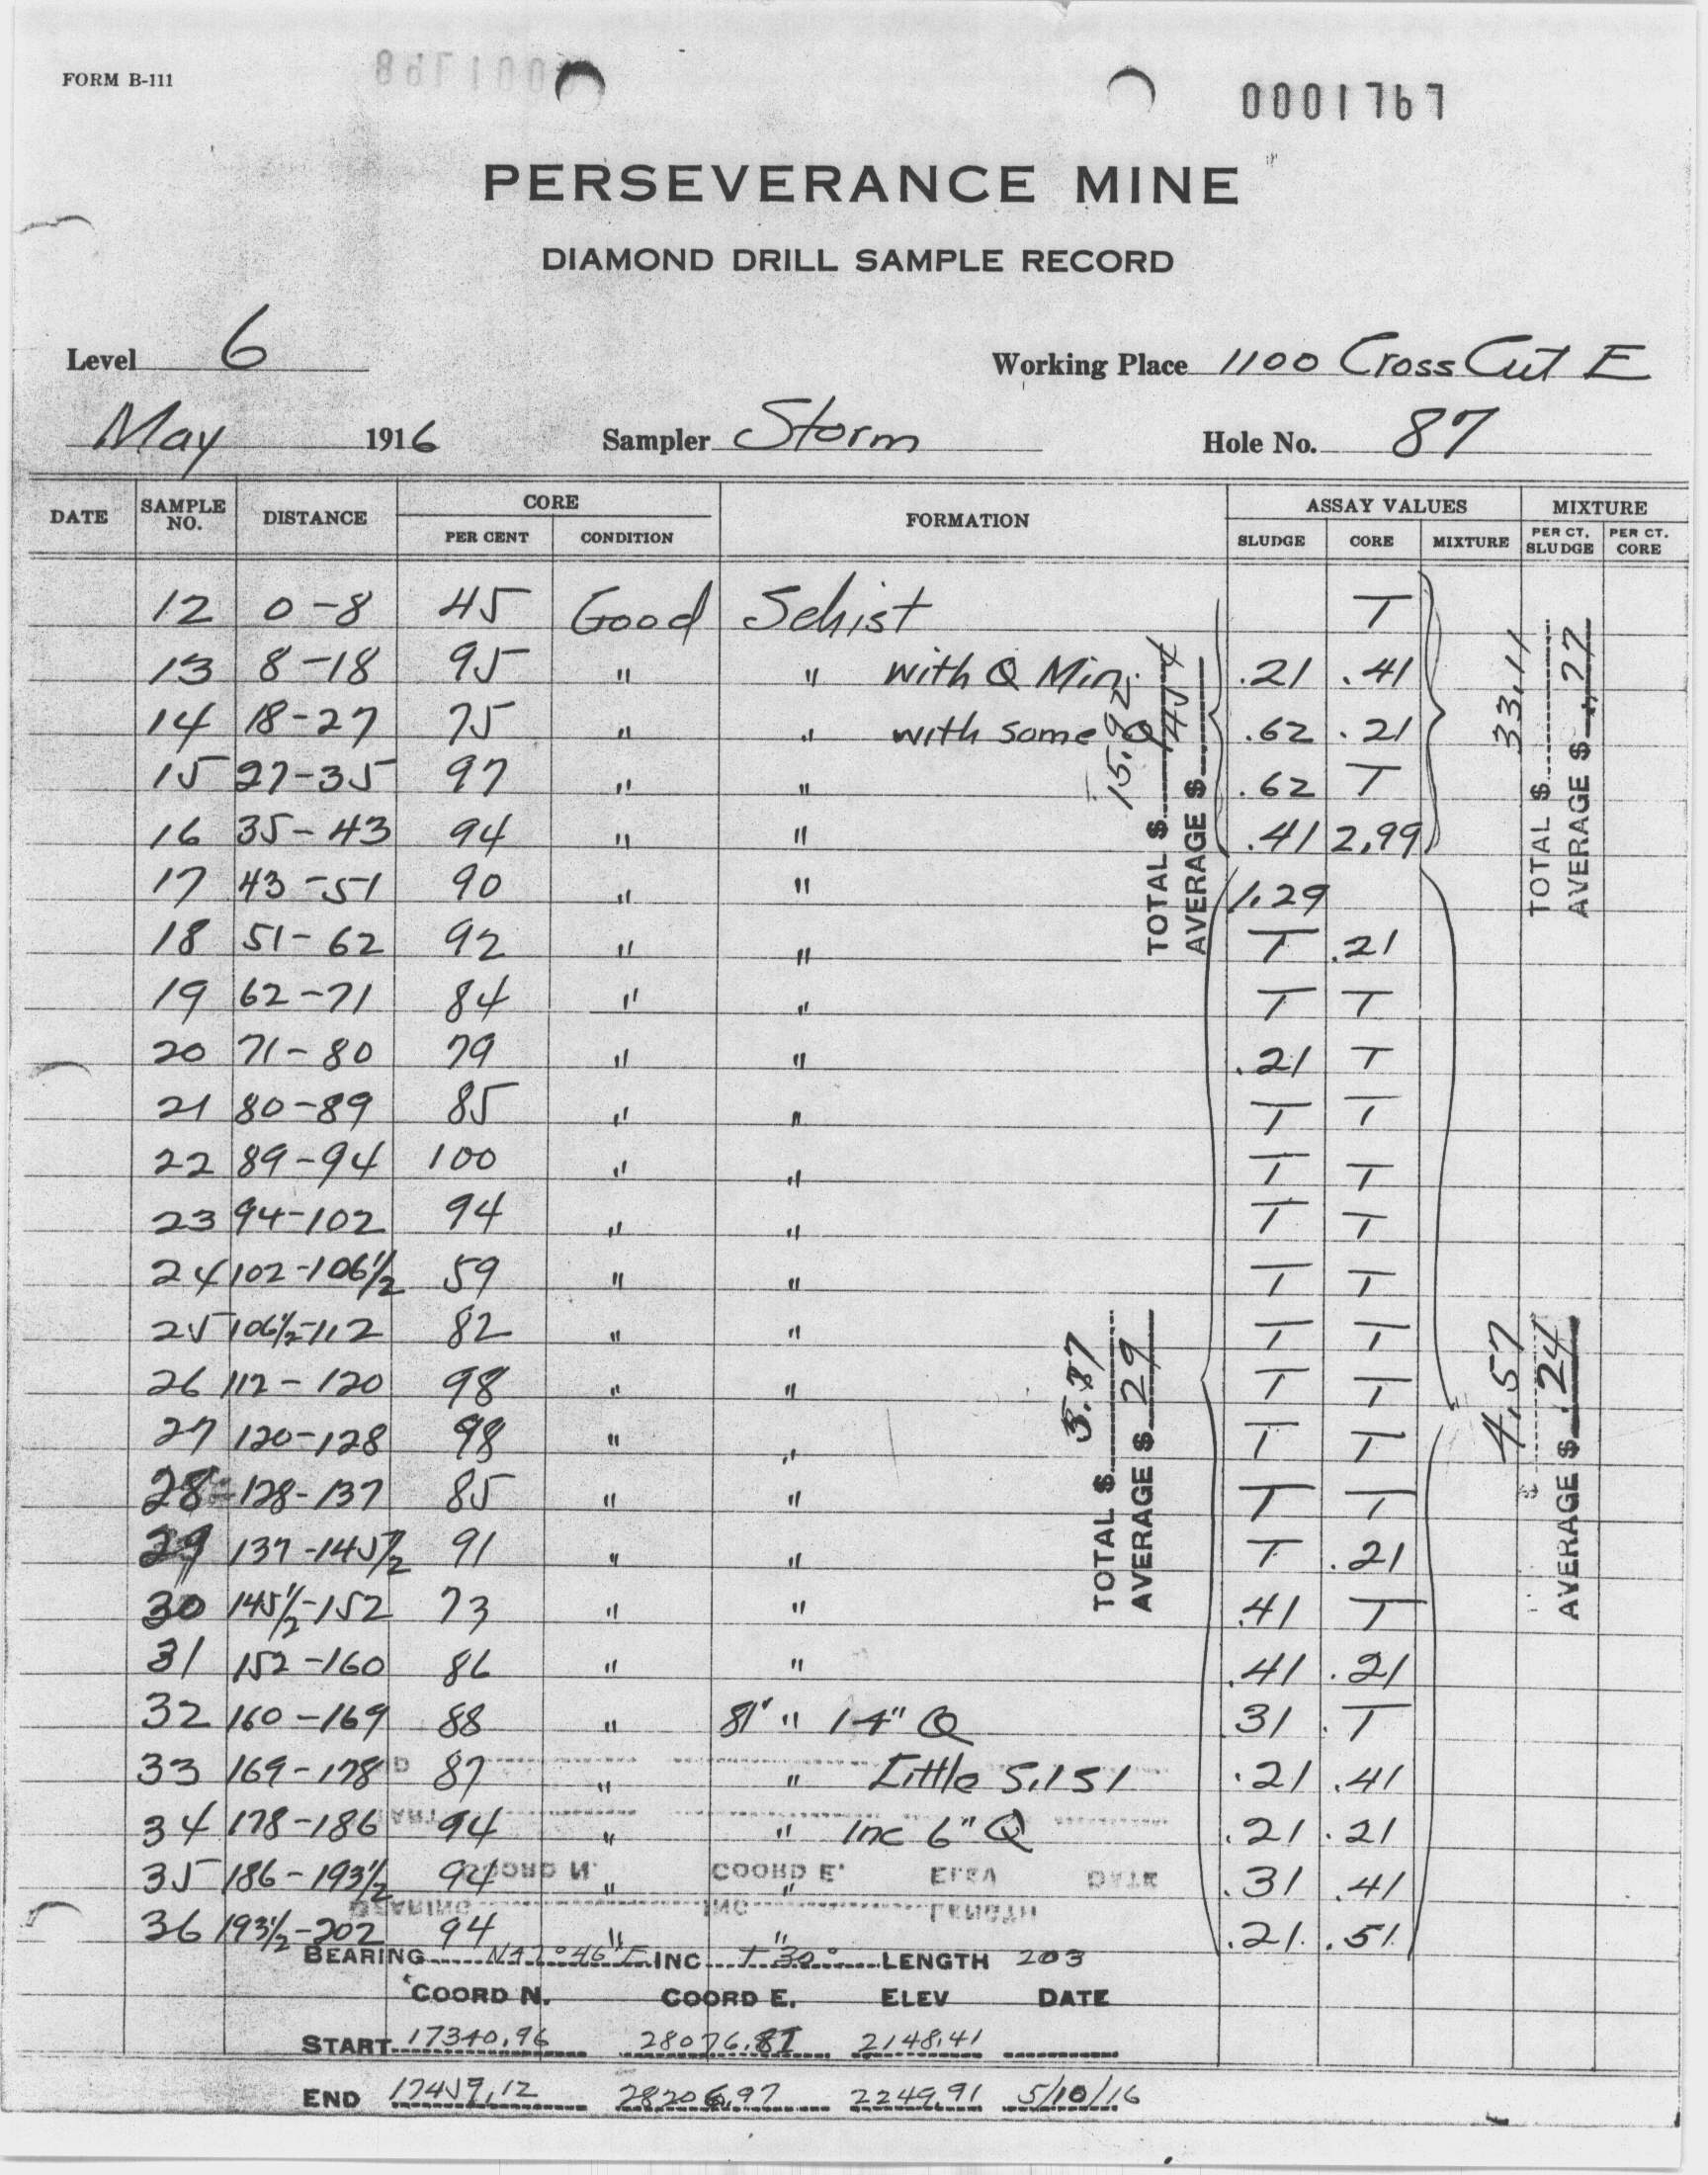 FORM B-111
0001767
PERSEVERANCE MINE
DIAMOND DRILL SAMPLE RECORD
Level 6 Working Place 1100 Cross Cut E
May 1916 Sampler Storm Hole No. 87
DATE SAMPLE NO. DISTANCE CORE PER CENT CONDITION FORMATION ASSAY VALUES SLUDGE CORE MIXTURE MIXTURE PER CT. SLUDGE PER CT. CORE
12 0-8 45 Good Schist T
13 8-18 95 " " with Q Min. .21 .41
14 18-27 75 " " with some Q .62 .21
15 27-35 97 " " .62 T
16 35-43 94 " " .41 2.99
17 43-51 90 " " 1.29
18 51-62 92 " " T .21
19 62-71 84 " " T T
20 71-80 79 " " .21 T
21 80-89 85 " " T T
22 89-94 100 " " T T
23 94-102 94 " " T T
24 102-106½ 59 " " T T
25 106½-112 82 " " T T
26 112-120 98 " " T T
27 120-128 98 " " T T
28 128-137 85 " " T T
29 137-145½ 91 " " T .21
30 145½-152 73 " " .41 T
31 152-160 86 " " .41 .21
32 160-169 88 " " 14" Q .31 T
33 169-178 87 " " Little .21 .41
34 178-186 94 " " Inc 6" Q .21 .21
35 186-193½ 94 " " .31 .41
36 193½-202 94 " " .21 .51
TOTAL $ 15.92
AVERAGE $
TOTAL $ 33.11
AVERAGE $
TOTAL $
AVERAGE $ 29
4.57
AVERAGE $ .24
BEARING INC + 30° LENGTH 203
COORD N. COORD E. ELEV DATE
START 17340.96 28076.87 2148.41
END 17459.12 28206.97 2249.91 5/10/16